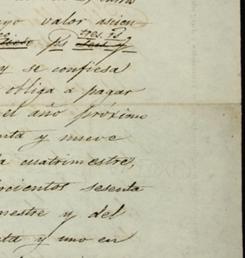 yo valor asien
tres p.
ps
y se confiesa
obliga a pagar
el año próximo
nta y nueve
a cuatrimestre,
cientos sesenta
mestre y del
ta y uno en